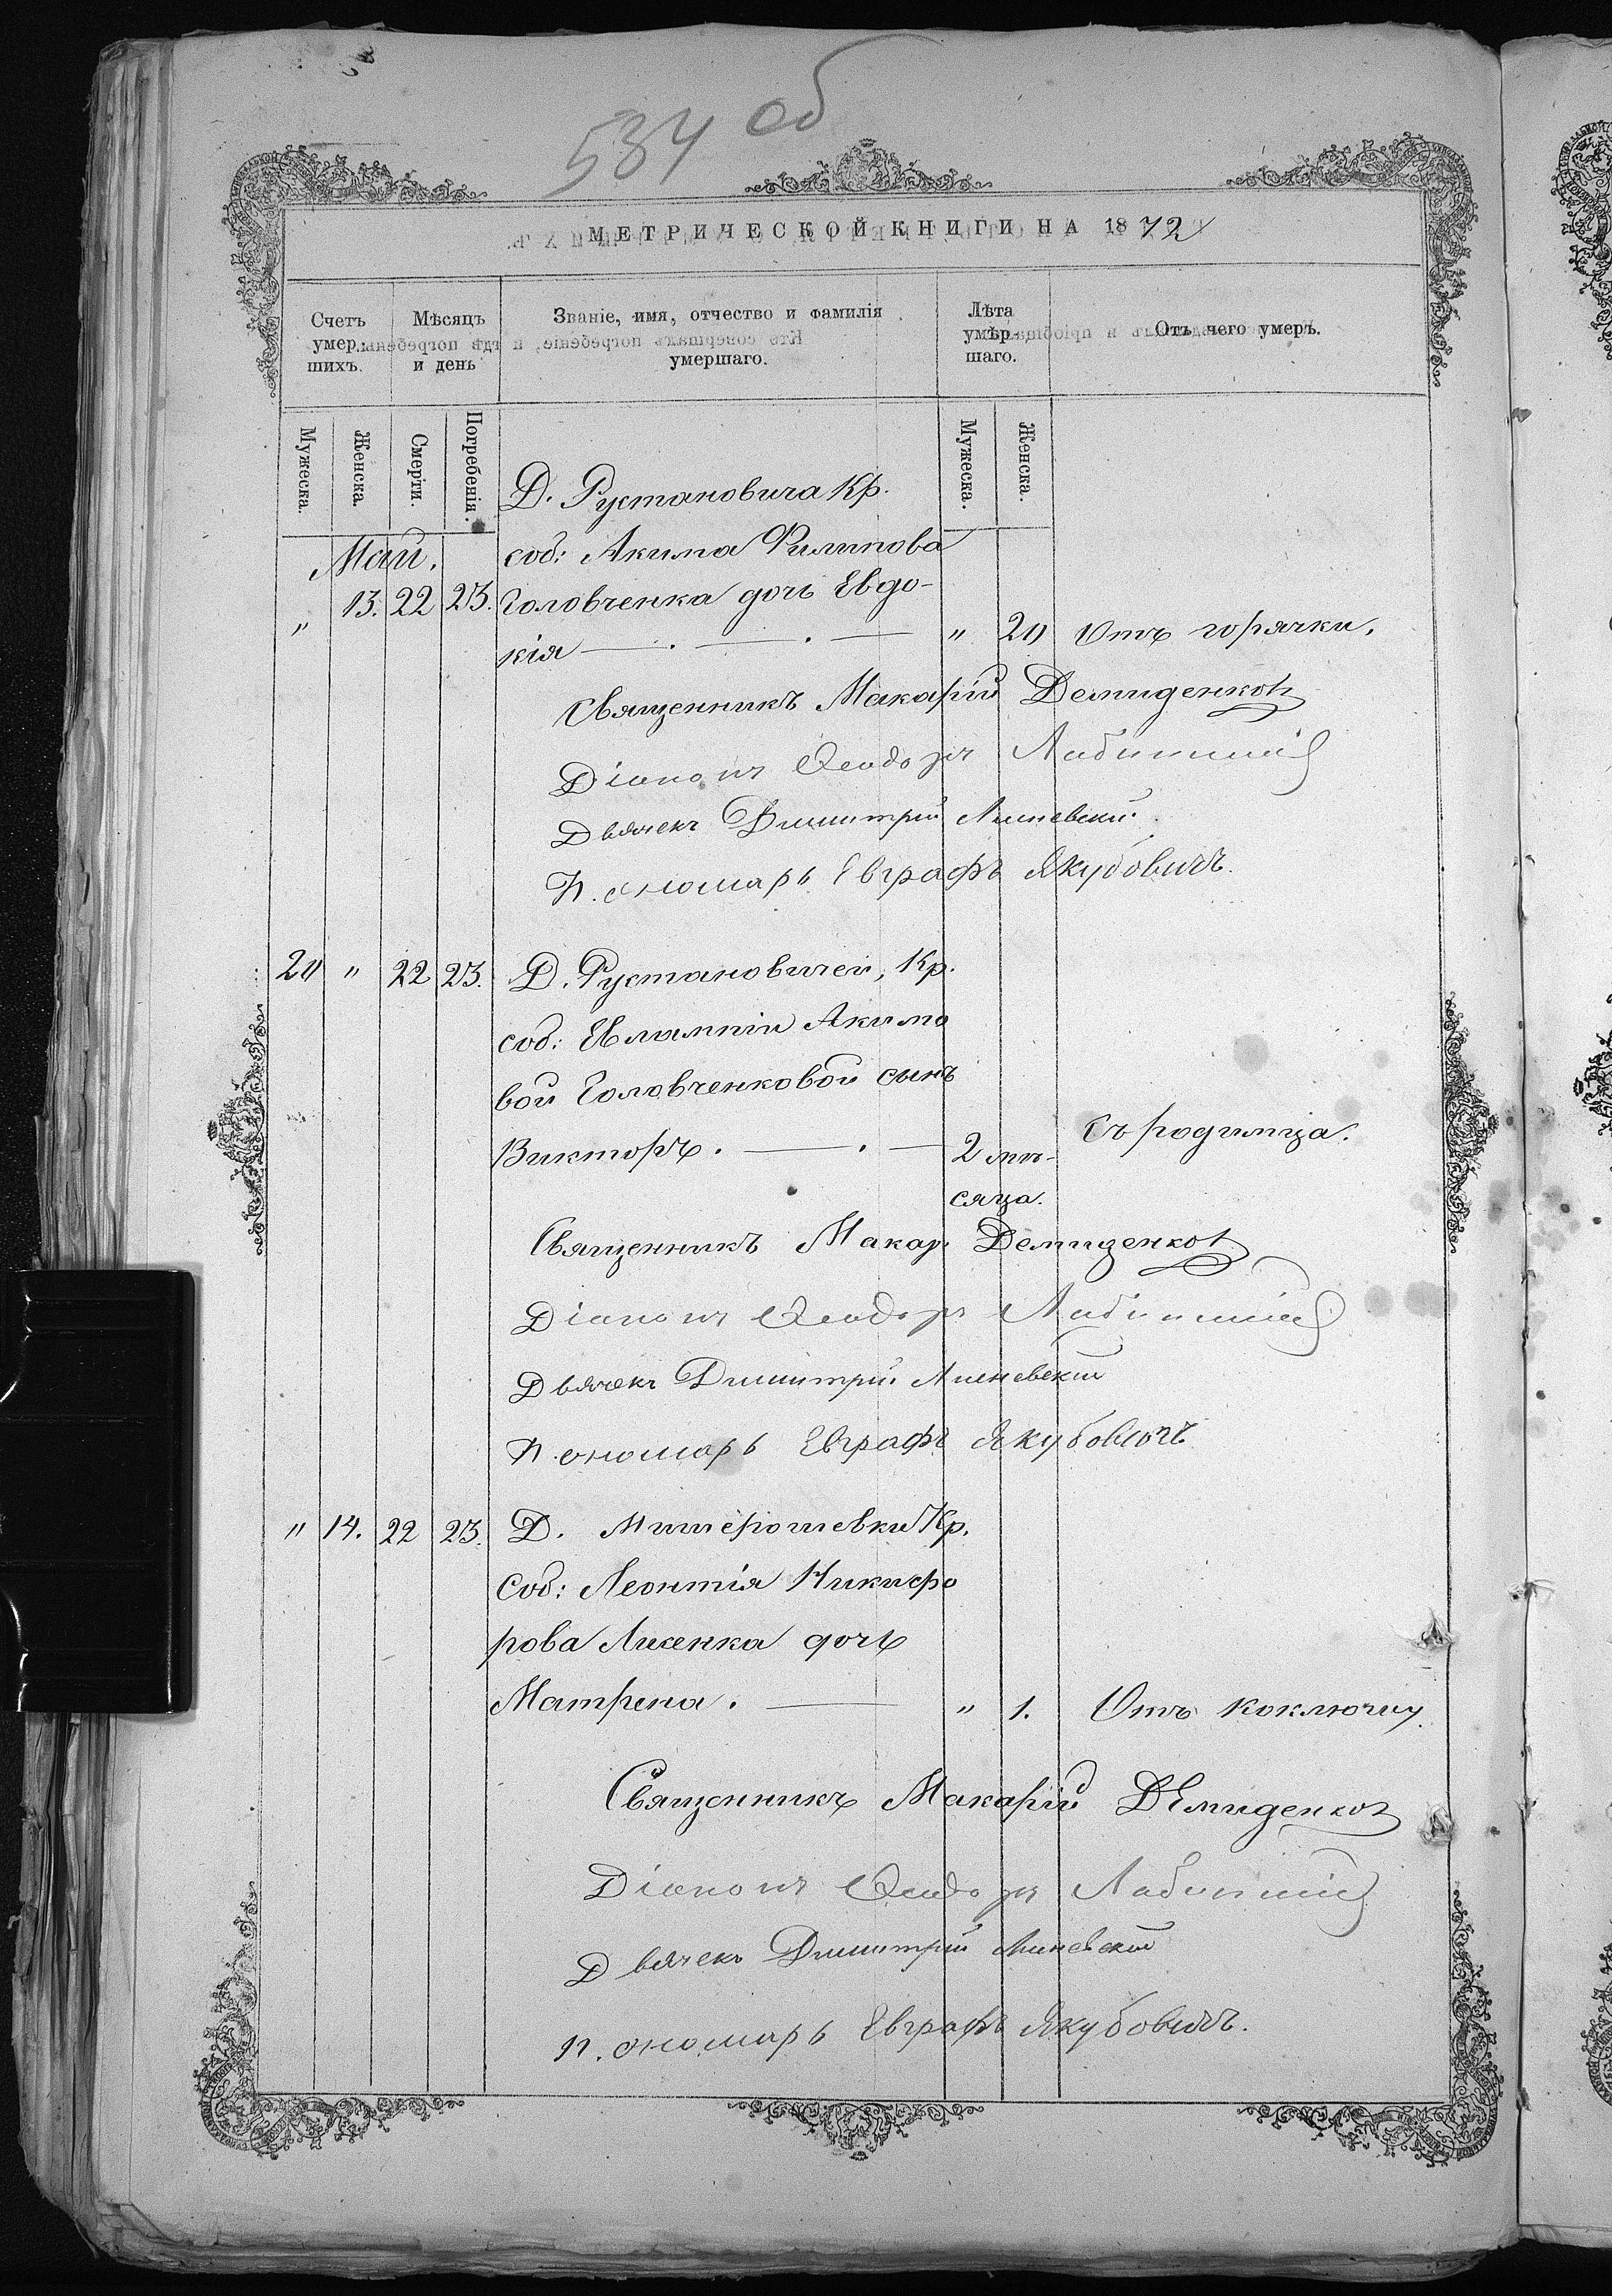 534 об
МЕТРИЧЕСКОЙ КНИГИ НА 1872
Счетъ умер- шихъ.
Мѣсяцъ и день
Званіе, имя, отчество и фамилія умершаго.
Лѣта умер- шаго.
Отъ чего умеръ.
Мужеска. Женска. Смерти. Погребенія. Мужеска. Женска.
Д. Рустановича Кр.
Май. соб: Акима Филипова
" 13. 22 23. Головченка дочь Евдо-
кія " 20 Отъ горячки.
Священникъ Макарій Демиденков
Діаконъ Ѳеодоръ
Дьячекъ Димитрій
Пономарь Евграфъ Якубовичъ.
20 " 22 23. Д. Рустановичей, Кр.
соб: Евлампіи Акимо
вой Головченковой сынъ
Викторъ. 2 мѣ- Съ родимца.
сяца.
Священникъ Макар. Демиденков
Діаконъ Ѳеодоръ
Дьячекъ Димитрій
Пономарь Евграфъ Якубовичъ
" 14. 22 23. Д. Кр.
Соб: Леонтія Никифо
рова Лисенка дочь
Матрена. " 1. Отъ коклюшу.
Священникъ Макарій Демиденков
Діаконъ Ѳеодоръ
Дьячекъ Димитрій
Пономарь Евграфъ Якубовичъ.